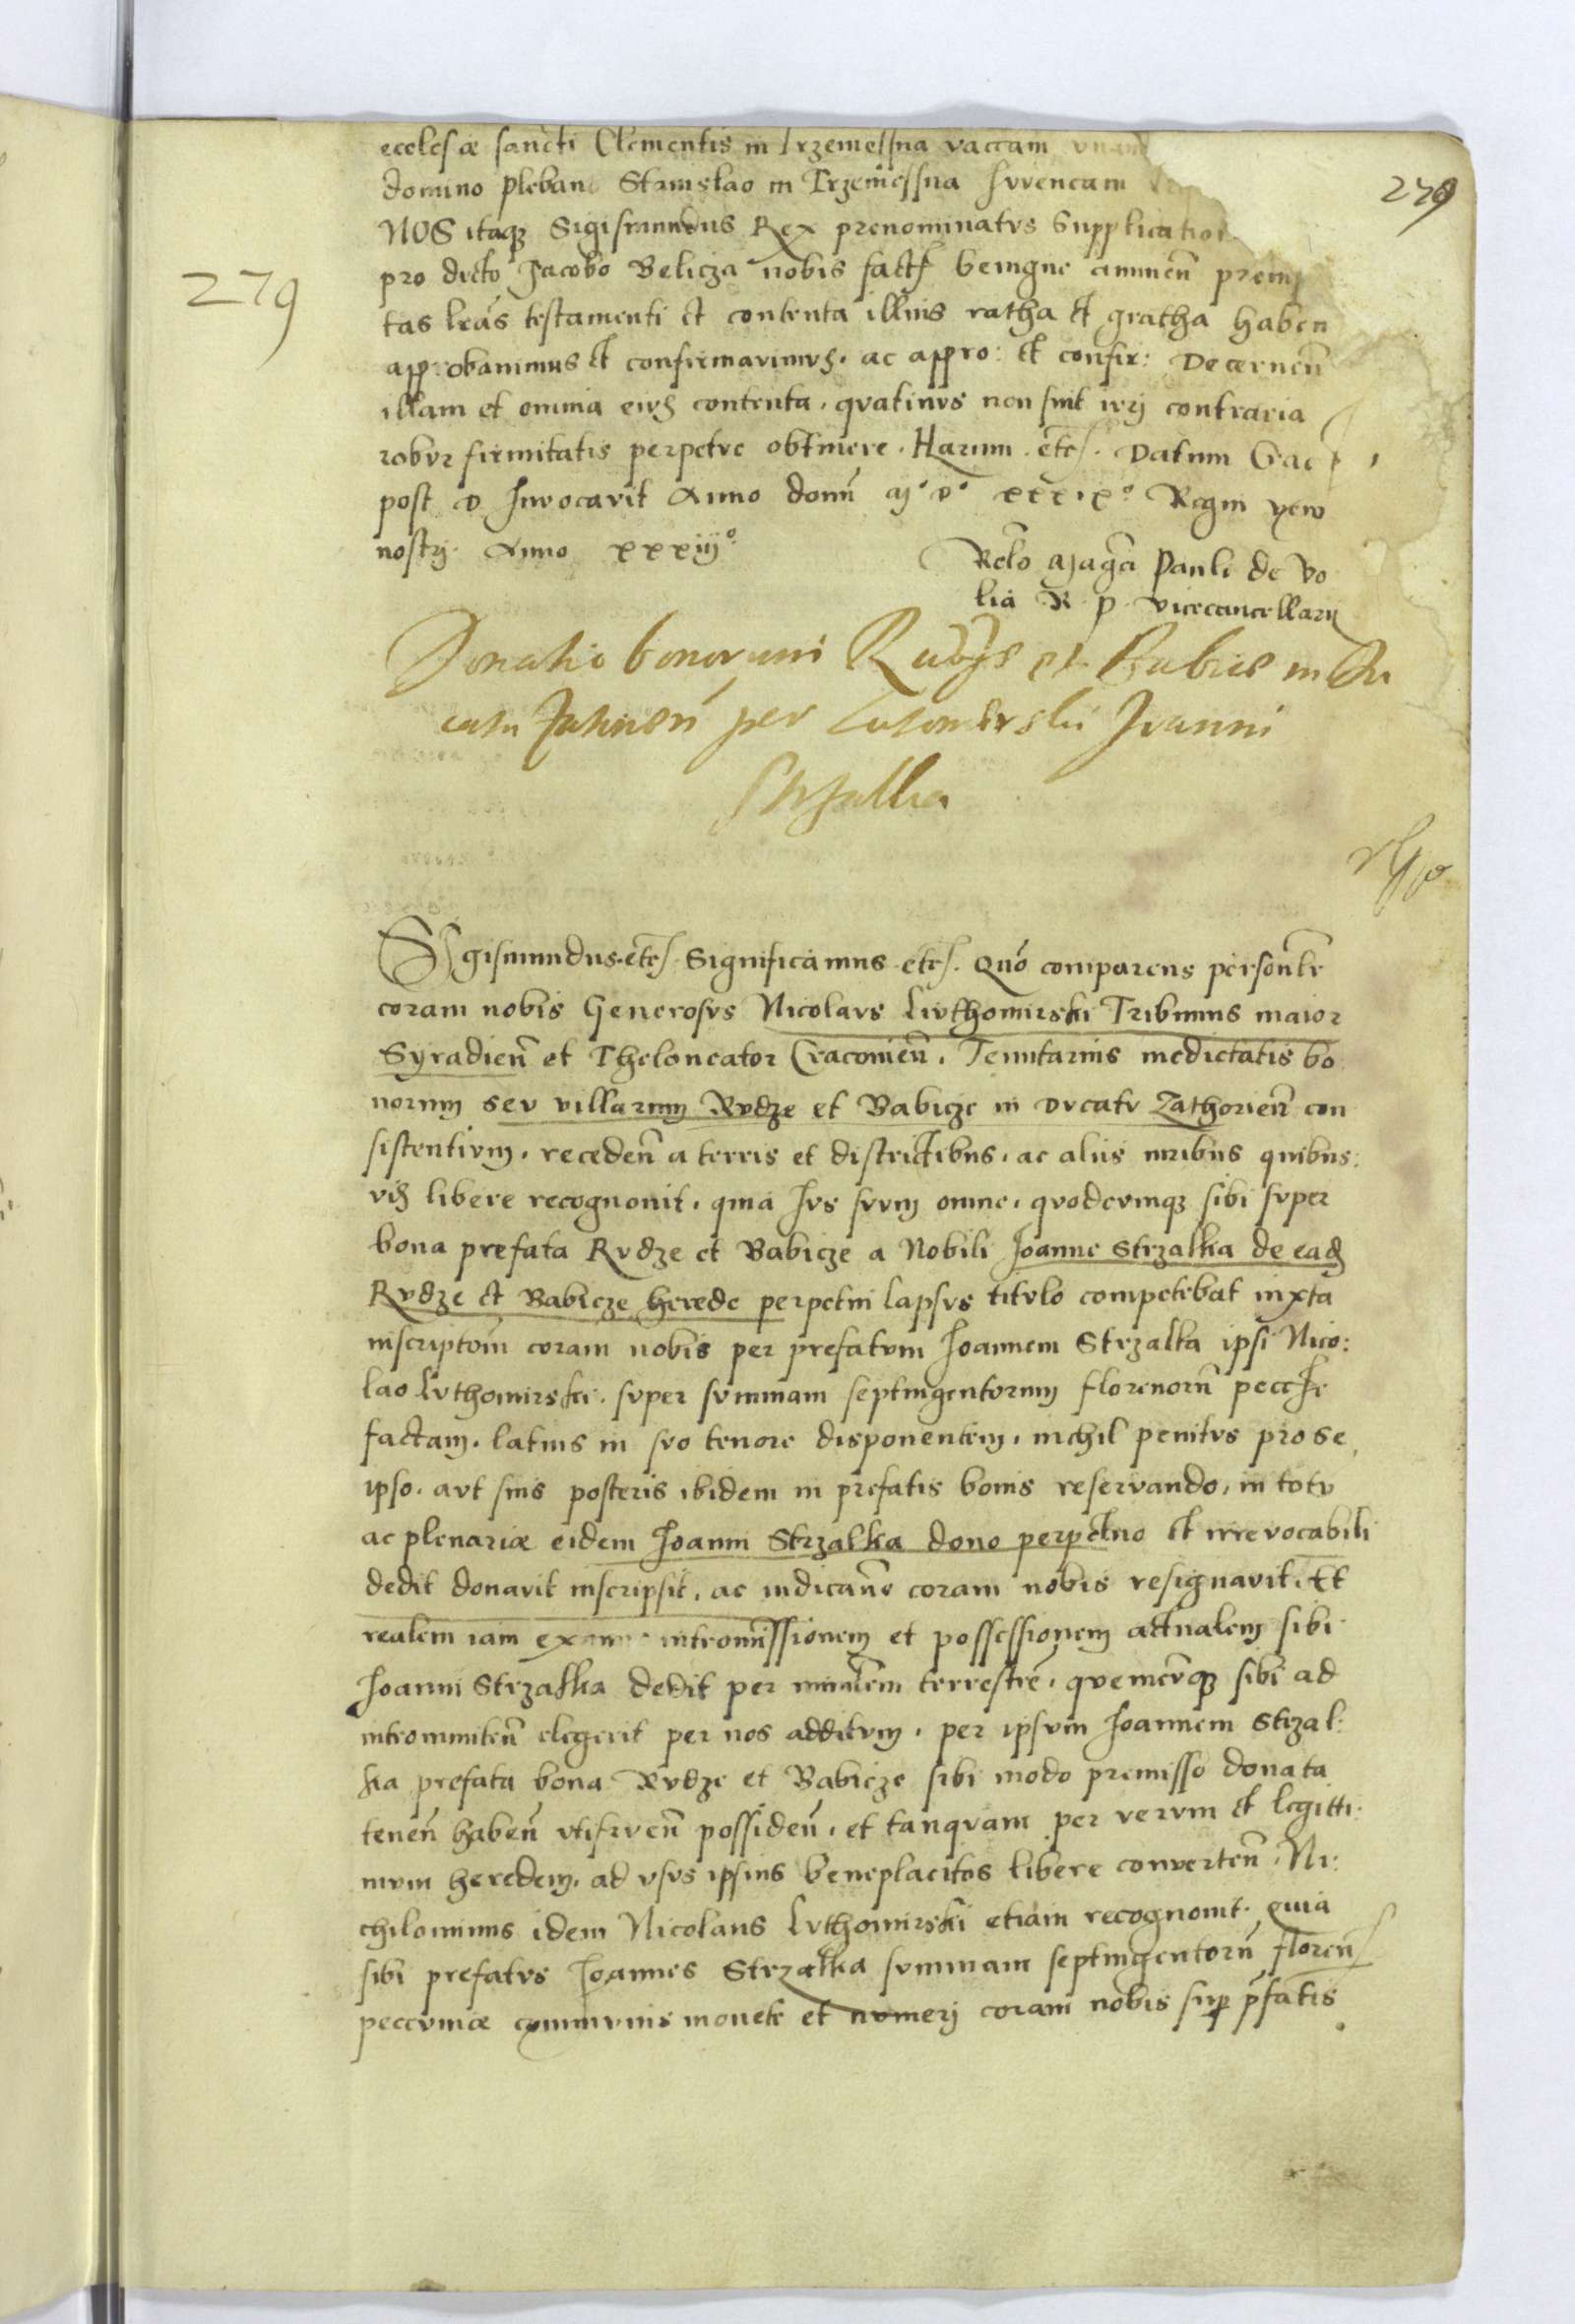 ecclesiæ sancti Clementis in Trzemessna vaccam vnam
domino plebano Stanislao in Trzemessna Iuvencam
279
NOS itaqz Sigismundus Rex prenominatvs Supplication
279
pro dicto Jacobo Belicza nobis fact benigne annuen̄ premis
tas lr̄as testamenti et contenta illius ratha et gratha haben
approbavimus et confirmavimvs. ac appro: et confir: Decernen̄
illam et omnia eivs contenta, qvatinvs non sint ivri contraria
robvr firmitatis perpetve obtinere. Harum. etc. Datum
post D Invocavit Anno domi M° D° xxxix° Regni vero
nostri. Anno xxxiij°
Relō Magci Pauli de Vo
lia R P Vicecancellarii
Donatio bonorum Rudze et Babice in Du
catu Zatorien per Lutomirski Joanni
Strzalka
Sigismundus. etc. Significamus. etc. Quō comparens personlr
coram nobis Generosvs Nicolavs Livthomirski Tribunus maior
Syradien̄ et Theloneator Cracovien̄. Tenutarius medietatis bo
norum sev villarum Rvdze et Babicze in Dvcatv Zathorien̄ con
sistentivm, receden̄ a terris et districtibus, ac aliis iuribus quibus:
vis libere recognovit, quia Ivs svvm omne, qvodcvmqz sibi svper
bona prefata Rvdze et Babicze a Nobili Joanne Strzalka de ead
Rvdze et Babicze herede perpetui lapsvs titvlo competebat iuxta
inscriptōm coram nobis per prefatvm Joannem Strzalka ipsi Nico:
lao Lvthomirski, svper svmmam septingentorum florenorū pecc
factam, latius in svo tenore disponentem, nichil penitvs pro se
ipso, avt suis posteris ibidem in prefatis bonis reservando, in totv
ac plenariæ eidem Joanni Strzalka dono perpetuo et irrevocabili
dedit donavit inscripsit, ac iudicā͂e coram nobis resignavit. Et
realem iam ex intromissionem et possessionem actualem sibi
Joanni Strzalka dedit per minr̄em terrestrē, qvemcvqz sibi ad
intromitten̄ elegerit per nos additvm, per ipsvm Joannem Strzal:
ka prefata bona Rvdze et Babicze sibi modo premisso donata
tenen̄ haben̄ vtifrven̄ possiden̄, et tanqvam per vervm et legitti:
mvm heredem, ad vsvs ipsius beneplacitos libere converten̄. Ni:
chilominus idem Nicolaus Lvthomirski etiam recognovit. qvia
sibi prefatvs Joannes Strzalka svmmam septingentorū floren
peccvniæ commvnis monete et nvmeri coram nobis sup p̄fatis